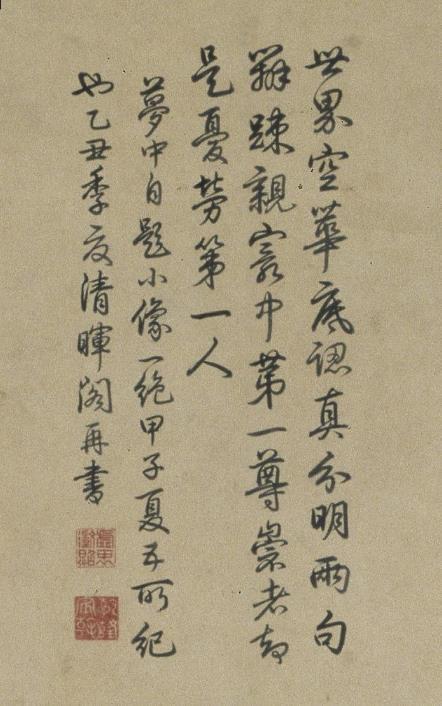 世界空華底認真分明兩句
辨踈親寰中第一尊崇者却
是憂勞第一人
夢中自題小像一絕甲子夏五所紀
也乙丑季夏清暉閣再書